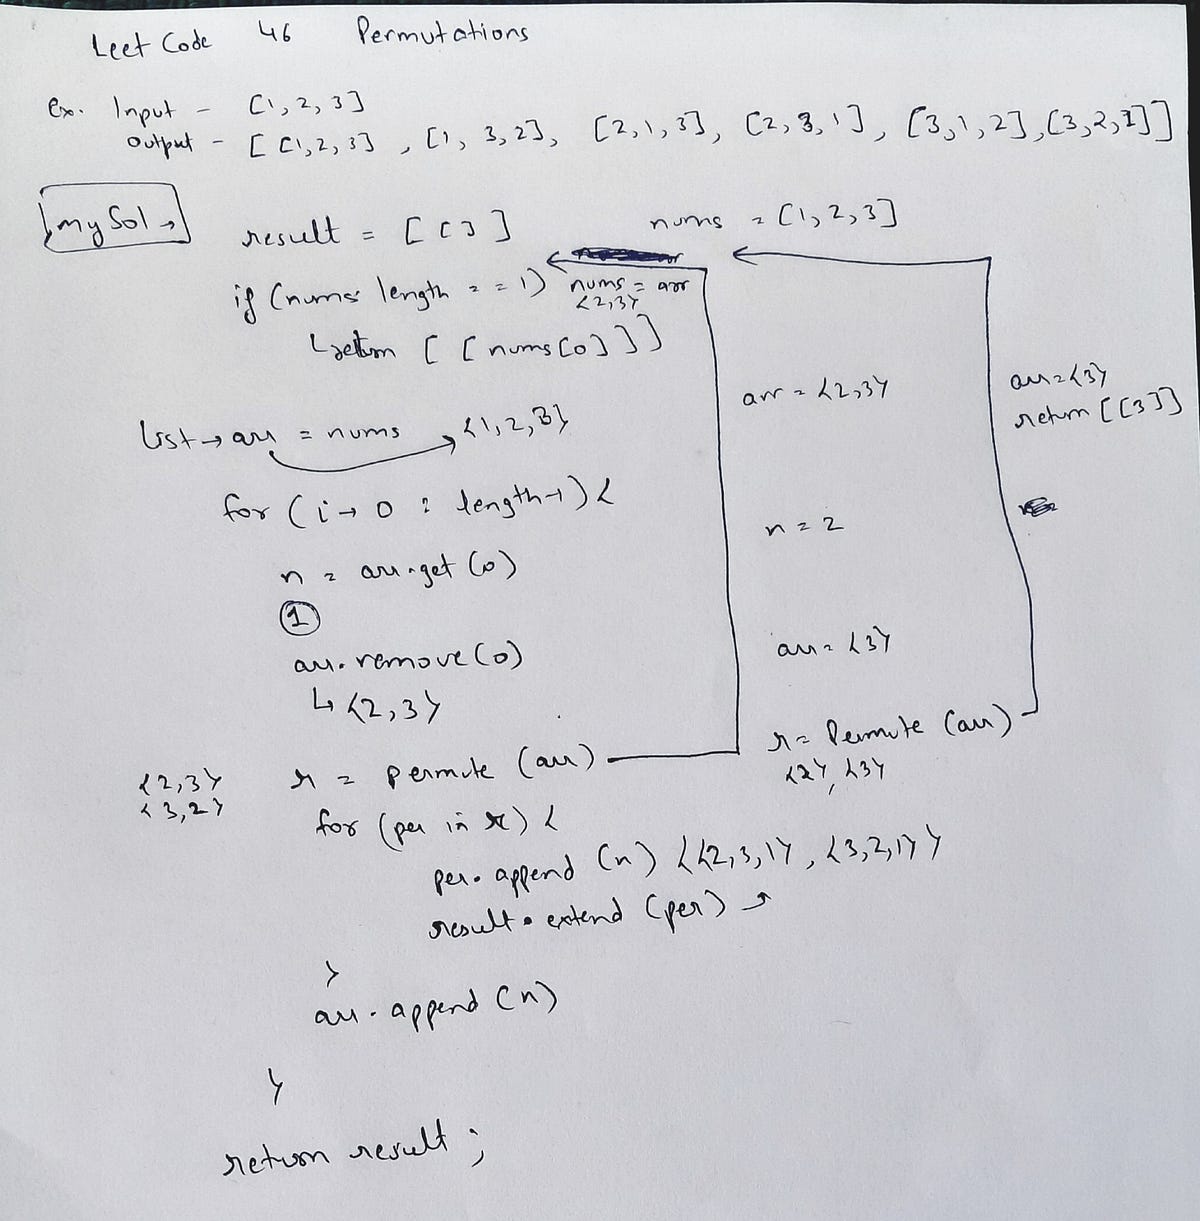 Leet Code 46 Permutations
Ex. Input - [1, 2, 3]
Output - [ [1,2,3] , [1, 3,2], [2,1,3], [2,3,1], [3,1,2],[3,2,1]]
my Sol →
result = [ [ ] ]
nums = [1,2,3]
if (nums. length = = 1) nums = arr
{2,3}
↳ return [ [ nums[0] ] ]
arr = {2,3}
arr = {3}
return [[3]]
List → arr = nums → {1,2,3}
for (i → 0 : length-1) {
n = 2
n = arr.get (0)
①
arr. remove (0)
arr = {3}
↳ {2,3}
r = Permute (arr)
{2}, {3}
{2,3}
{3,2}
r = permute (arr)
for (per in r) {
per. append (n) {{2,3,1}, {3,2,1}}
result. extend (per)
}
arr. append (n)
}
return result ;